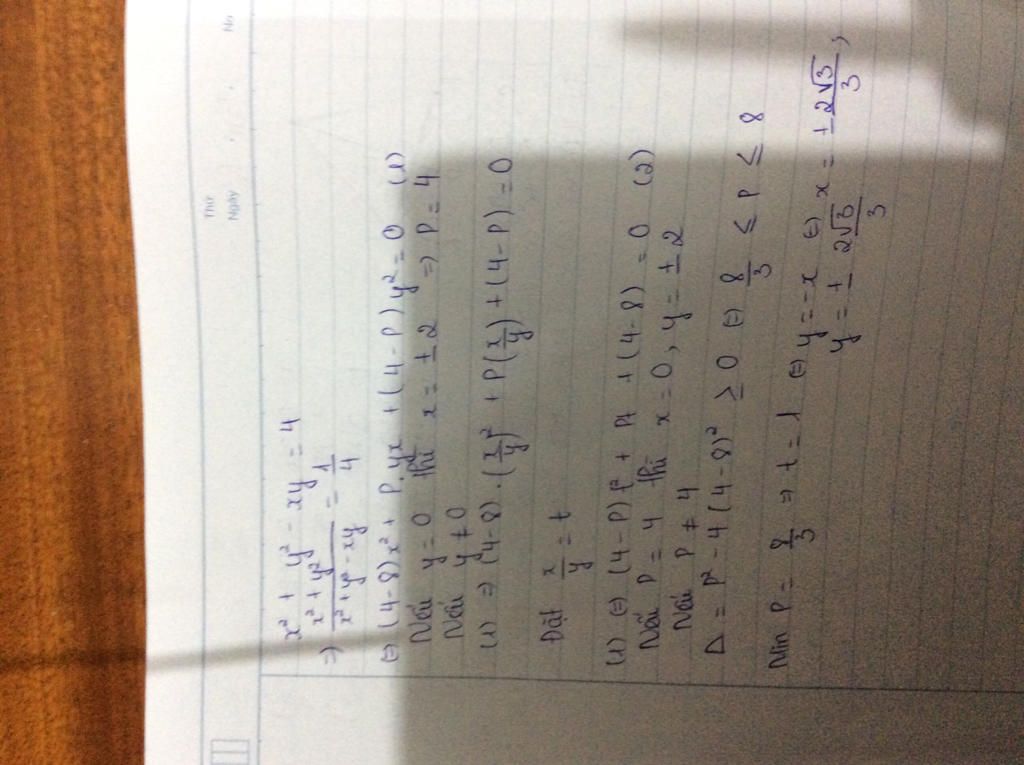 Thứ
Ngày No
x² + y² - xy = 4
⇒ (x² + y²)/(x² + y² - xy) = 1/4
⇔ (4-8)x² + P.yx + (4-P)y² = 0 (1)
Nếu y = 0 thì x = ±2 ⇒ P = 4
Nếu y ≠ 0
(1) ⇒ (4-8).(x/y)² + P(x/y) + (4-P) = 0
Đặt x/y = t
(1) ⇔ (4-P)t² + Pt + (4-8) = 0 (2)
Nếu P = 4 thì x = 0, y = ±2
Nếu P ≠ 4
Δ = P² - 4(4-8)² ≥ 0 ⇔ 8/3 ≤ P ≤ 8
Min P = 8/3 ⇒ t = 1 ⇔ y = -x ⇔ x = ± 2√3/3 ;
y = ± 2√3/3